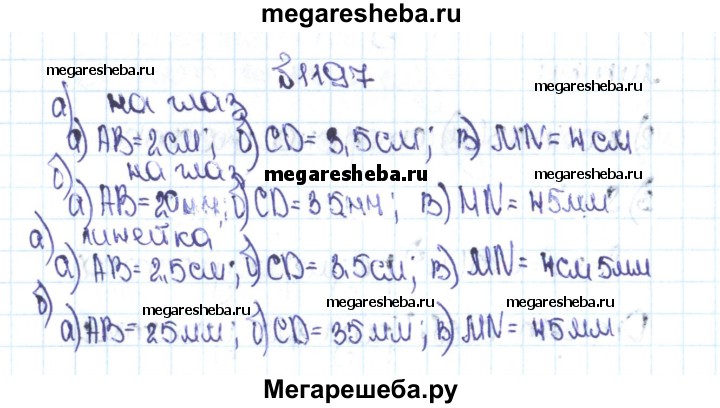 megaresheba.ru
№1197
megaresheba.ru megaresheba.ru
а) на глаз
а) AB=2см; б) CD=3,5см; в) MN=4см
megaresheba.ru
б) на глаз
а) AB=20мм; б) CD=35мм; в) MN=45мм
а) линейка
а) AB=2,5см; б) CD=3,5см; в) MN=4см5мм
megaresheba.ru megaresheba.ru
б)
а) AB=25мм; б) CD=35мм; в) MN=45мм
Мегарешеба.ру